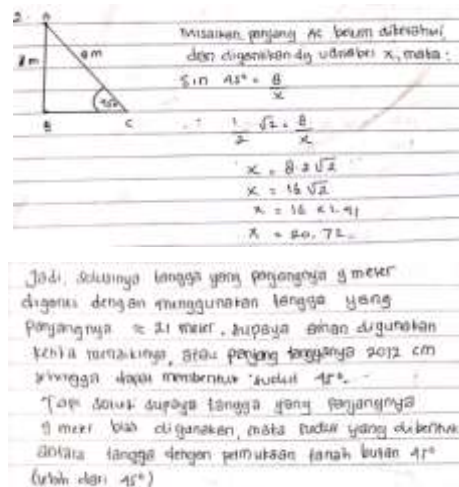 2.
A
8 m
9 m
45°
B
C
Misalkan panjang AC belum diketahui,
dan digantikan dg variabel x, maka:
Sin 45° = 8/x
∴ 1/2 √2 = 8/x
x = 8.2√2
x = 16√2
x = 16 x 1.41
x = 20,72
Jadi, solusinya tangga yang panjangnya 9 meter
diganti dengan menggunakan tangga yang
panjangnya ≈ 21 meter, supaya aman digunakan
ketika menaikinya, atau panjang tangganya 2072 cm
sehingga dapat membentuk sudut 45°.
Tapi solusi supaya tangga yang panjangnya
9 meter bisa digunakan, maka sudut yang dibentuk
antara tangga dengan permukaan tanah bukan 45°
(lebih dari 45°)